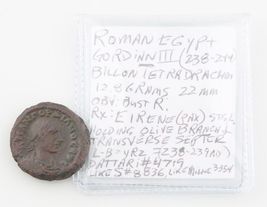 ROMAN EGYPT
GORDIAN III (238-244)
BILLON TETRADRACHM
12.8 GRAMS 22mm
OBV: BUST R.
RX: EIRENE (PAX) STG. L
HOLDING OLIVE BRANCH &
TRANSVERSE SCEPTER
L-B = YR 2 238-239 AD)
DATTARI #4719
LIKE S# 8836, LIKE MILNE 3354